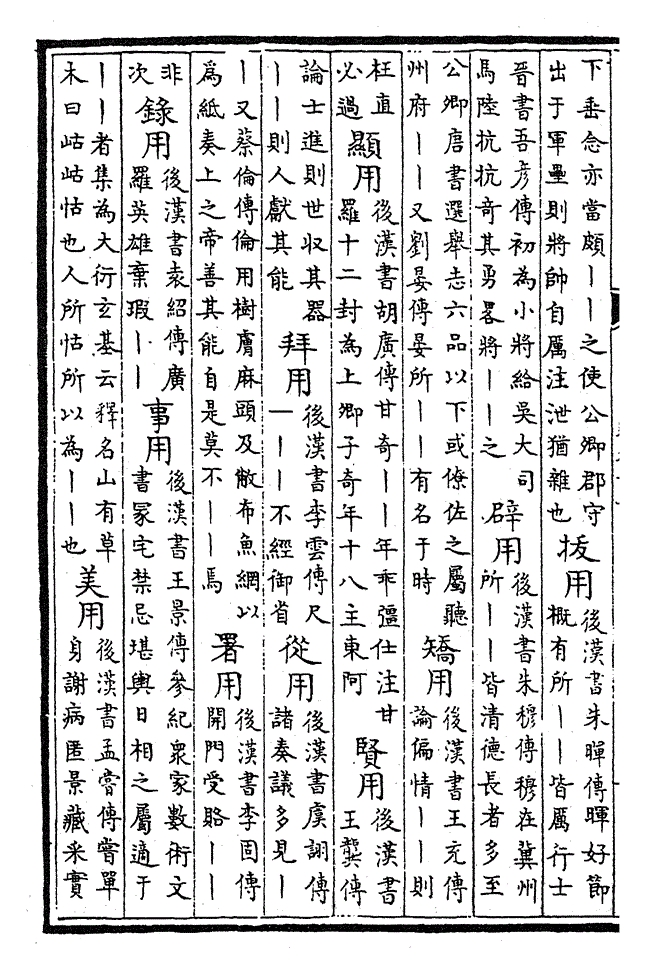 下垂念亦當頗丨丨之使公卿郡守
出于軍壘則將帥自厲注泄猶雜也
拔用
後漢書朱暉傳暉好節
概有所丨丨皆厲行士
晉書吾彥傳初為小將給吳大司
馬陸抗抗奇其勇畧將丨丨之
辟用
後漢書朱穆傳穆在冀州
所丨丨皆清德長者多至
公卿唐書選舉志六品以下或僚佐之屬聽
州府丨丨又劉晏傳晏所丨丨有名于時
矯用
後漢書王充傳
論偏情丨丨則
枉直
必過
顯用
後漢書胡廣傳甘奇丨丨年乖彊仕注甘
羅十二封為上卿子奇年十八主東阿
賢用
後漢書
王龔傳
論士進則世収其器
丨丨則人獻其能
拜用
後漢書李雲傳尺
一丨丨不經御省
從用
後漢書虞詡傳
諸奏議多見丨
丨又蔡倫傳倫用樹膚麻頭及敝布魚網以
為紙奏上之帝善其能自是莫不丨丨焉
署用
後漢書李固傳
開門受賂丨丨
非
次
錄用
後漢書袁紹傳廣
羅英雄棄瑕丨丨
事用
後漢書王景傳參紀衆家數術文
書冢宅禁忌堪輿日相之屬適于
丨丨者集為大衍玄基云釋名山有草
木曰岵岵怙也人所怙所以為丨丨也
美用
後漢書孟嘗傳嘗單
身謝病匿景藏采實